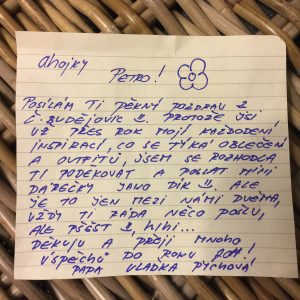 Ahojky
Petro!
Posílám Ti pěkný pozdrav z
Č. Budějovic !!. Protože jsi
už přes rok mojí každodení
inspirací, co se týká oblečení
a outfitů, jsem se rozhodla
Ti poděkovat a poslat mimi
dárečky jako dík !!. Ale
je to jen mezi námi dvěma,
vždy Ti ráda něco pošlu,
ale pššššt !!, hihi...
Děkuju a přeji mnoho
úspěchů do roku
Papa Vladka Pýchová!